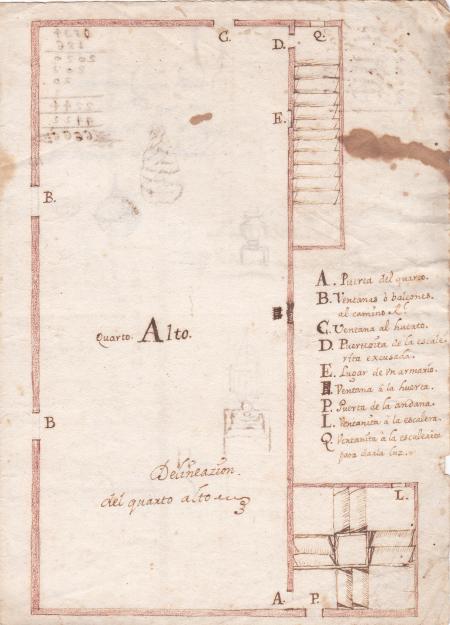 C.
D.
Q.
E.
B.
A. Puerta del quarto.
B. Ventanas ò balcones
al camino Rl.
C. Ventana al huerto.
D. Puertezita de la escale
rita excusada.
E. Lugar de un armario.
Ventana à la huerta.
P. Puerta de la andana.
L. Ventanita à la escalera.
Q Ventanita à la escalerita
para darla luz.
Quarto. Alto.
B
Delineazion
del quarto alto
L.
A.
P.